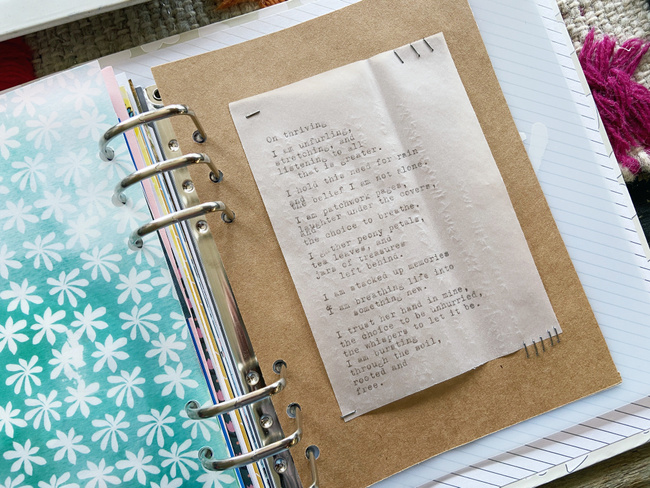 On thriving
I am unfurling,
stretching, and
listening to all
that is greater.
I hold this need for rain
and the belief I am not alone.
I am patchwork pages,
laughter under the covers,
and
the choice to breathe.
I gather peony petals,
tea leaves, and
jars of treasures
left behind.
I am stacked up memories
I am breathing life into
something new.
I trust her hand in mine,
the choice to be unhurried,
the whispers to let it be.
I am bursting
through the soil,
rooted and
free.